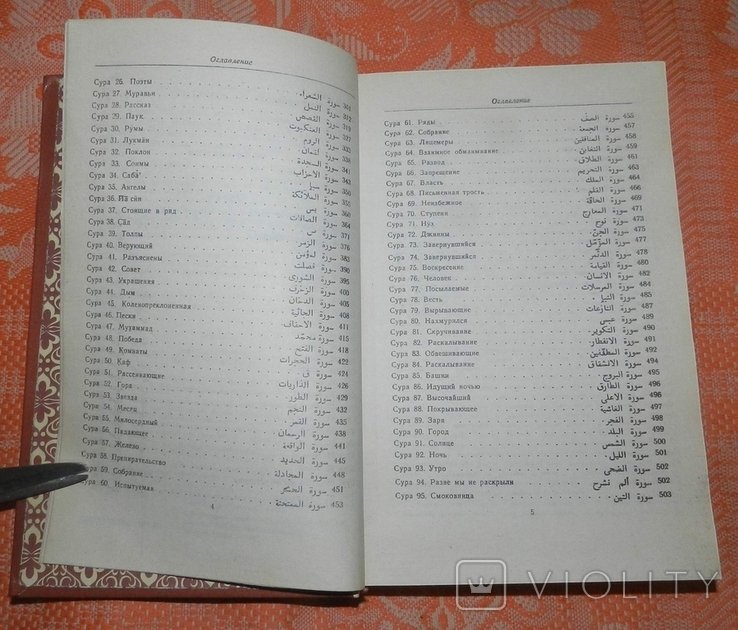 Оглавление
Сура 26. Поэты سورة الشعراء
Сура 27. Муравьи سورة النمل 312
Сура 28. Рассказ سورة القصص 319
Сура 29. Паук سورة العنكبوت 330
Сура 30. Румы سورة الروم 337
Сура 31. Лукман سورة لقمان
Сура 32. Поклон سورة السجدة
Сура 33. Сонмы سورة الاحزاب
Сура 34. Саба' سورة سبأ
Сура 35. Ангелы سورة الملائكة
Сура 36. Йа син سورة يس
Сура 37. Стоящие в ряд سورة الصافات 364
Сура 38. Сад سورة ص 371
Сура 39. Толпы سورة الزمر 376
Сура 40. Верующий سورة المؤمن
Сура 41. Разъяснены سورة فصلت 390
Сура 42. Совет سورة الشورى 395
Сура 43. Украшения سورة الزخرف 400
Сура 44. Дым سورة الدخان 405
Сура 45. Коленопреклоненная سورة الجاثية 408
Сура 46. Пески سورة الاحقاف 411
Сура 47. Мухаммад سورة محمد 415
Сура 48. Победа سورة الفتح 418
Сура 49. Комнаты سورة الحجرات 422
Сура 50. Каф سورة ق 424
Сура 51. Рассеивающие سورة الذاريات 426
Сура 52. Гора سورة الطور 429
Сура 53. Звезда سورة النجم 432
Сура 54. Месяц سورة القمر 435
Сура 55. Милосердный سورة الرحمان 438
Сура 56. Падающее سورة الواقعة 441
Сура 57. Железо سورة الحديد 445
Сура 58. Препирательство سورة المجادلة 448
Сура 59. Собрание سورة الحشر 451
Сура 60. Испытуемая سورة الممتحنة 453
4
Оглавление
Сура 61. Ряды سورة الصف 455
Сура 62. Собрание سورة الجمعة 457
Сура 63. Лицемеры سورة المنافقين 458
Сура 64. Взаимное обманывание سورة التغابن 459
Сура 65. Развод سورة الطلاق 461
Сура 66. Запрещение سورة التحريم 463
Сура 67. Власть سورة الملك 464
Сура 68. Письменная трость سورة القلم 466
Сура 69. Неизбежное سورة الحاقة 469
Сура 70. Ступени سورة المعارج 471
Сура 71. Нух سورة نوح 473
Сура 72. Джинны سورة الجن 475
Сура 73. Завернувшийся سورة المزّمّل 477
Сура 74. Завернувшийся سورة المدّثّر 478
Сура 75. Воскресение سورة القيامة 480
Сура 76. Человек سورة الانسان 482
Сура 77. Посылаемые سورة المرسلات 483
Сура 78. Весть سورة النبأ 485
Сура 79. Вырывающие سورة النازعات 486
Сура 80. Нахмурился سورة عبس 487
Сура 81. Скручивание سورة التكوير 489
Сура 82. Раскалывание سورة الانفطار 490
Сура 83. Обвешивающие سورة المطفّفين 491
Сура 84. Раскалывание سورة الانشقاق 494
Сура 85. Башни سورة البروج 495
Сура 86. Идущий ночью سورة الطارق 496
Сура 87. Высочайший سورة الاعلى 496
Сура 88. Покрывающее سورة الغاشية 497
Сура 89. Заря سورة الفجر 498
Сура 90. Город سورة البلد 499
Сура 91. Солнце سورة الشمس 500
Сура 92. Ночь سورة الليل 500
Сура 93. Утро سورة الضحى 502
Сура 94. Разве мы не раскрыли سورة ألم نشرح 502
Сура 95. Смоковница سورة التين 503
5
VIOLITY